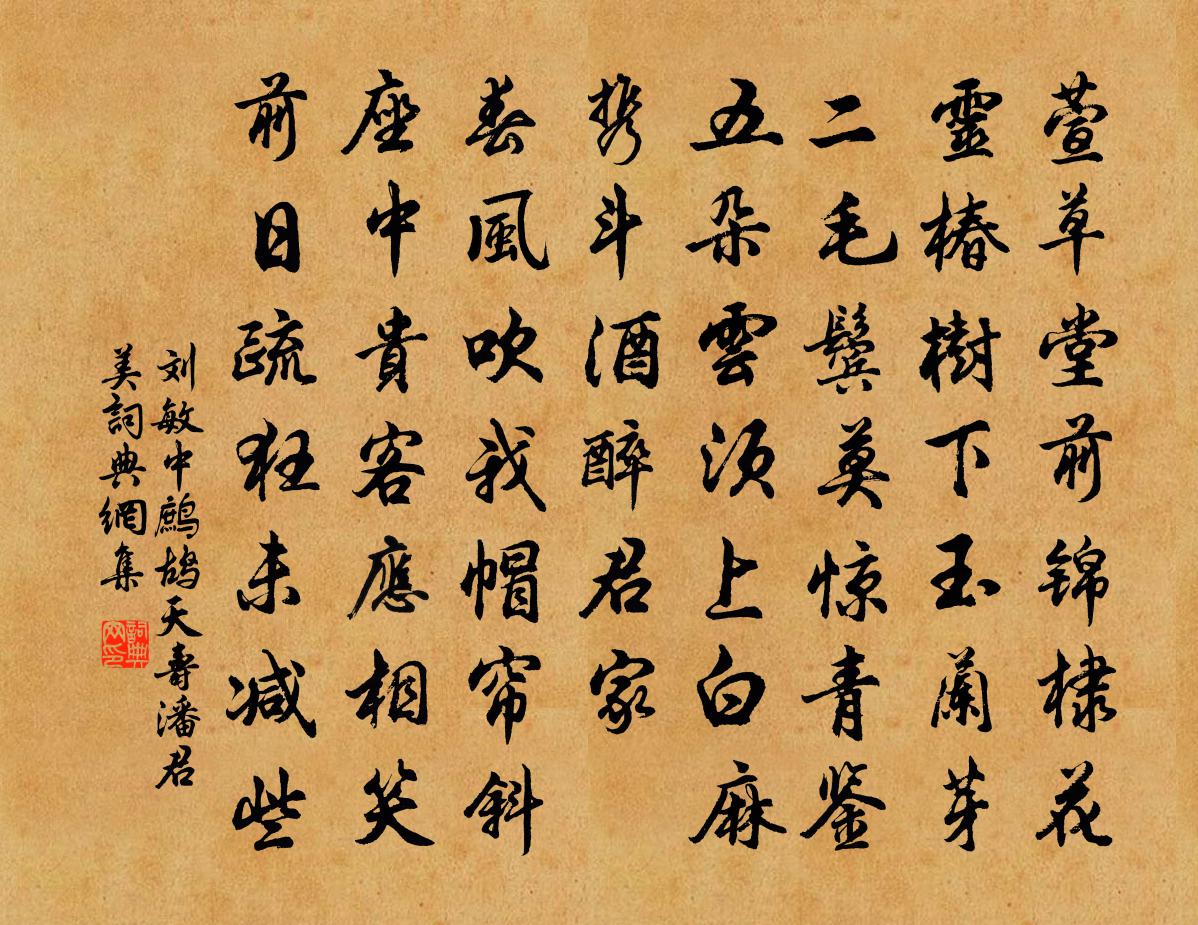 萱草堂前锦棣花
靈椿樹下玉蘭芽
二毛鬓莫惊青鉴
五朵雲须上白麻
携斗酒醉君家
春風吹我帽帘斜
座中貴客應相笑
前日疏狂未减些
刘敏中鹧鸪天寿潘君
美詞典網集
詞典網印